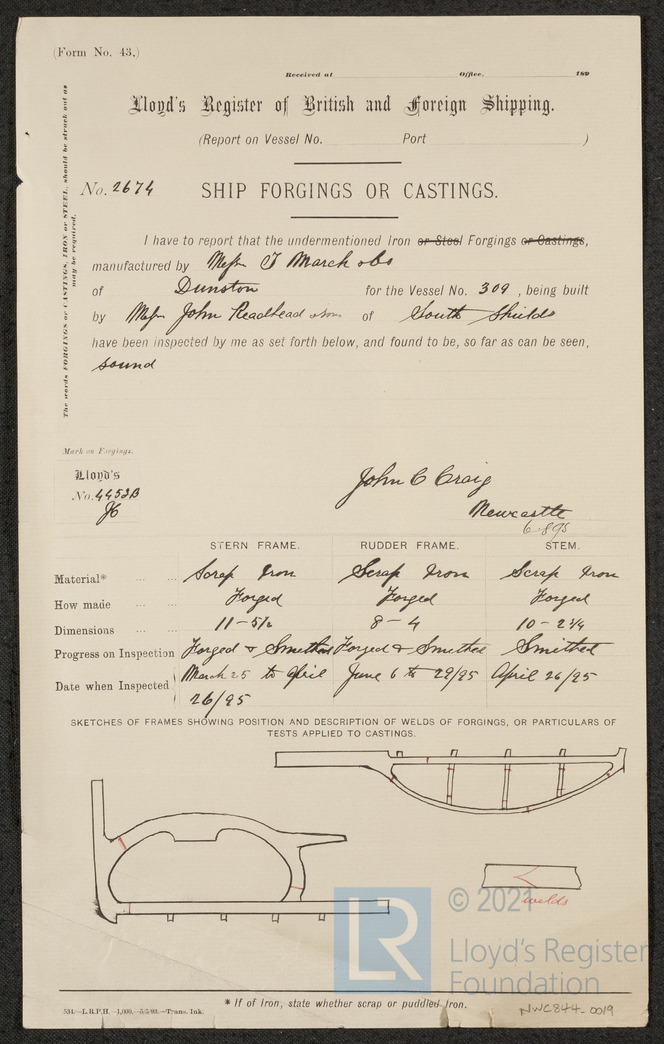 (Form No. 43,)
Received at Office, 189
Lloyd's Register of British and Foreign Shipping.
(Report on Vessel No. Port )
No. 2674 SHIP FORGINGS OR CASTINGS.
The words FORGINGS or CASTINGS, IRON or STEEL, should be struck out as
may be required.
I have to report that the undermentioned Iron or Steel Forgings or Castings,
manufactured by Messrs T March & Co
of Dunston for the Vessel No. 309, being built
by Messrs John Readhead & Sons of South Shields
have been inspected by me as set forth below, and found to be, so far as can be seen,
sound
Mark on Forgings.
Lloyd's
No. 4453B
JC
John C Craig
Newcastle
6.8.95
STERN FRAME. RUDDER FRAME. STEM.
Material* Scrap Iron Scrap Iron Scrap Iron
How made Forged Forged Forged
Dimensions 11 - 5½ 8 - 4 10 - 2¼
Progress on Inspection Forged & Smithed Forged & Smithed Smithed
Date when Inspected March 25 to April 26/95 June 6 to 29/95 April 26/95
SKETCHES OF FRAMES SHOWING POSITION AND DESCRIPTION OF WELDS OF FORGINGS, OR PARTICULARS OF
TESTS APPLIED TO CASTINGS.
welds
© 2021
Lloyd's Register
Foundation
* If of Iron, state whether scrap or puddled Iron.
534.—L.R.P.H.—1,000.—5/5/93.—Trans. Ink.
NWC844-0019